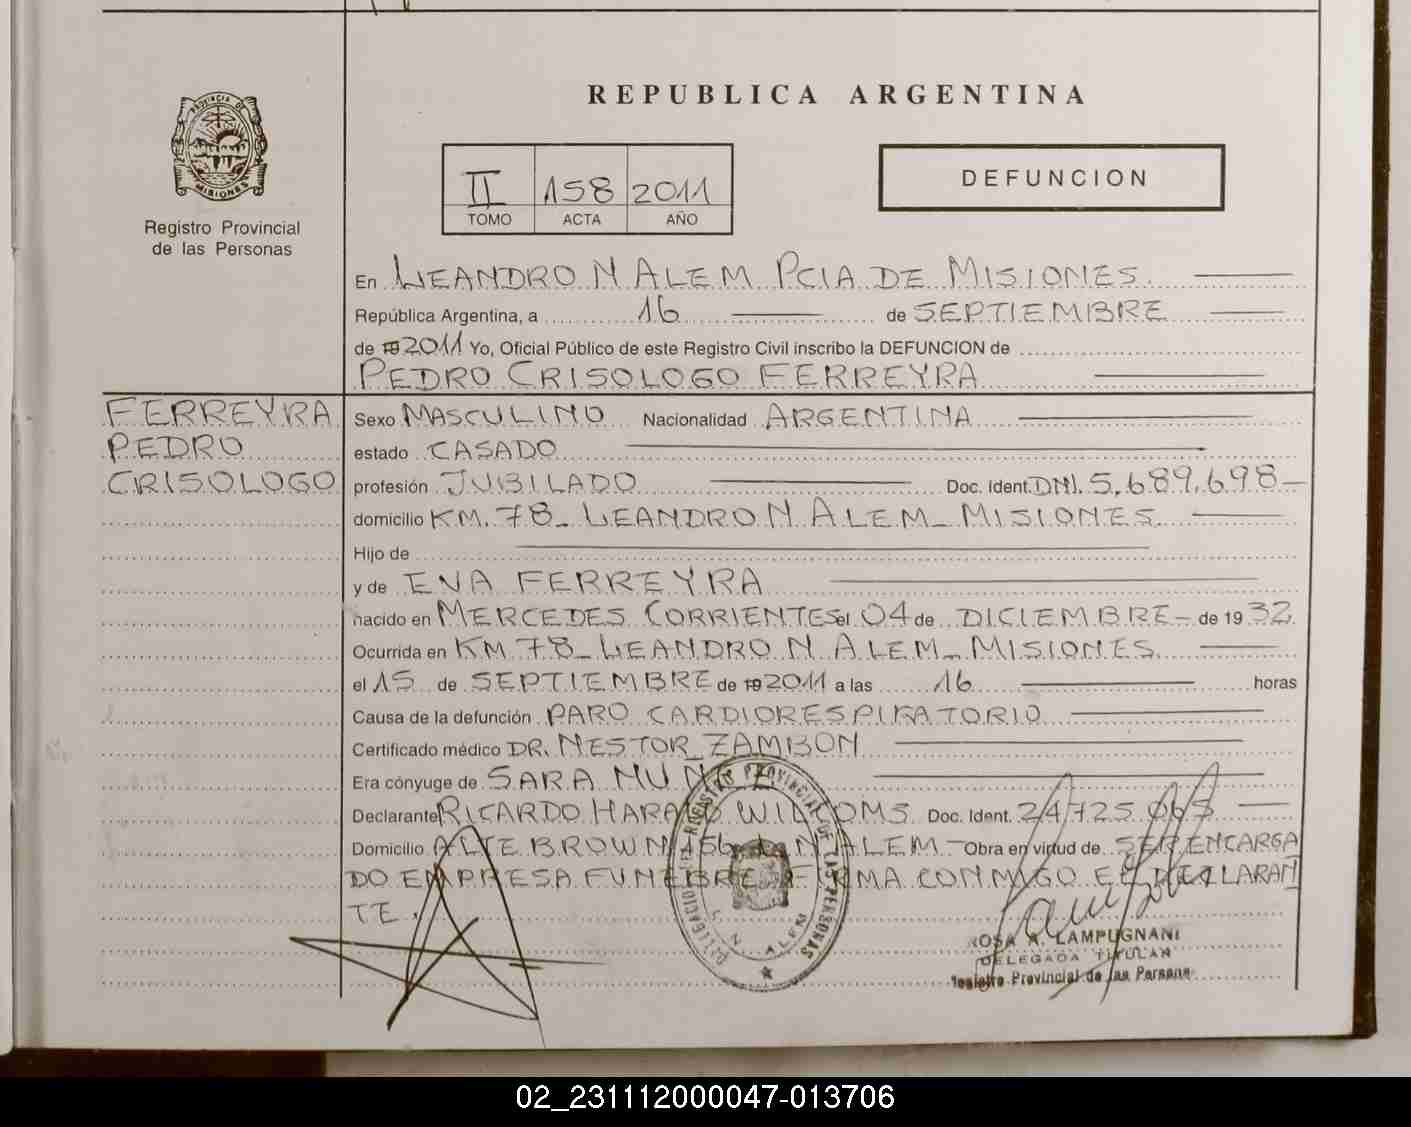 REPUBLICA ARGENTINA
PROVINCIA DE
MISIONES
Registro Provincial
de las Personas
II 158 2011
TOMO ACTA AÑO
DEFUNCION
En LEANDRO N ALEM PCIA DE MISIONES.
República Argentina, a 16 de SEPTIEMBRE
de 19 2011 Yo, Oficial Público de este Registro Civil inscribo la DEFUNCION de
PEDRO CRISOLOGO FERREYRA
FERREYRA
PEDRO
CRISOLOGO
Sexo MASCULINO Nacionalidad ARGENTINA
estado CASADO
profesión JUBILADO Doc. Ident. DNI. 5.689.698-
domicilio KM. 78_ LEANDRO N ALEM_ MISIONES
Hijo de
y de ENA FERREYRA
nacido en MERCEDES CORRIENTES el 04 de DICIEMBRE- de 1932
Ocurrida en KM 78_LEANDRO N ALEM_ MISIONES
el 15 de SEPTIEMBRE de 19 2011 a las 16 horas
Causa de la defunción PARO CARDIORESPIRATORIO
Certificado médico DR. NESTOR ZAMBON
Era cónyuge de SARA
Declarante RICARDO Doc. Ident.
Domicilio ALTE BROWN ALEM- Obra en virtud de SER ENCARGA
DO EMPRESA FUNEBRE FIRMA CONMIGO EL DECLARAN
TE.
DELEGACION REGISTRO PROVINCIAL DE LAS PERSONAS
L. N. ALEM
ROSA A. LAMPUGNANI
DELEGADA TITULAR
Registro Provincial de las Persona
02_231112000047-013706